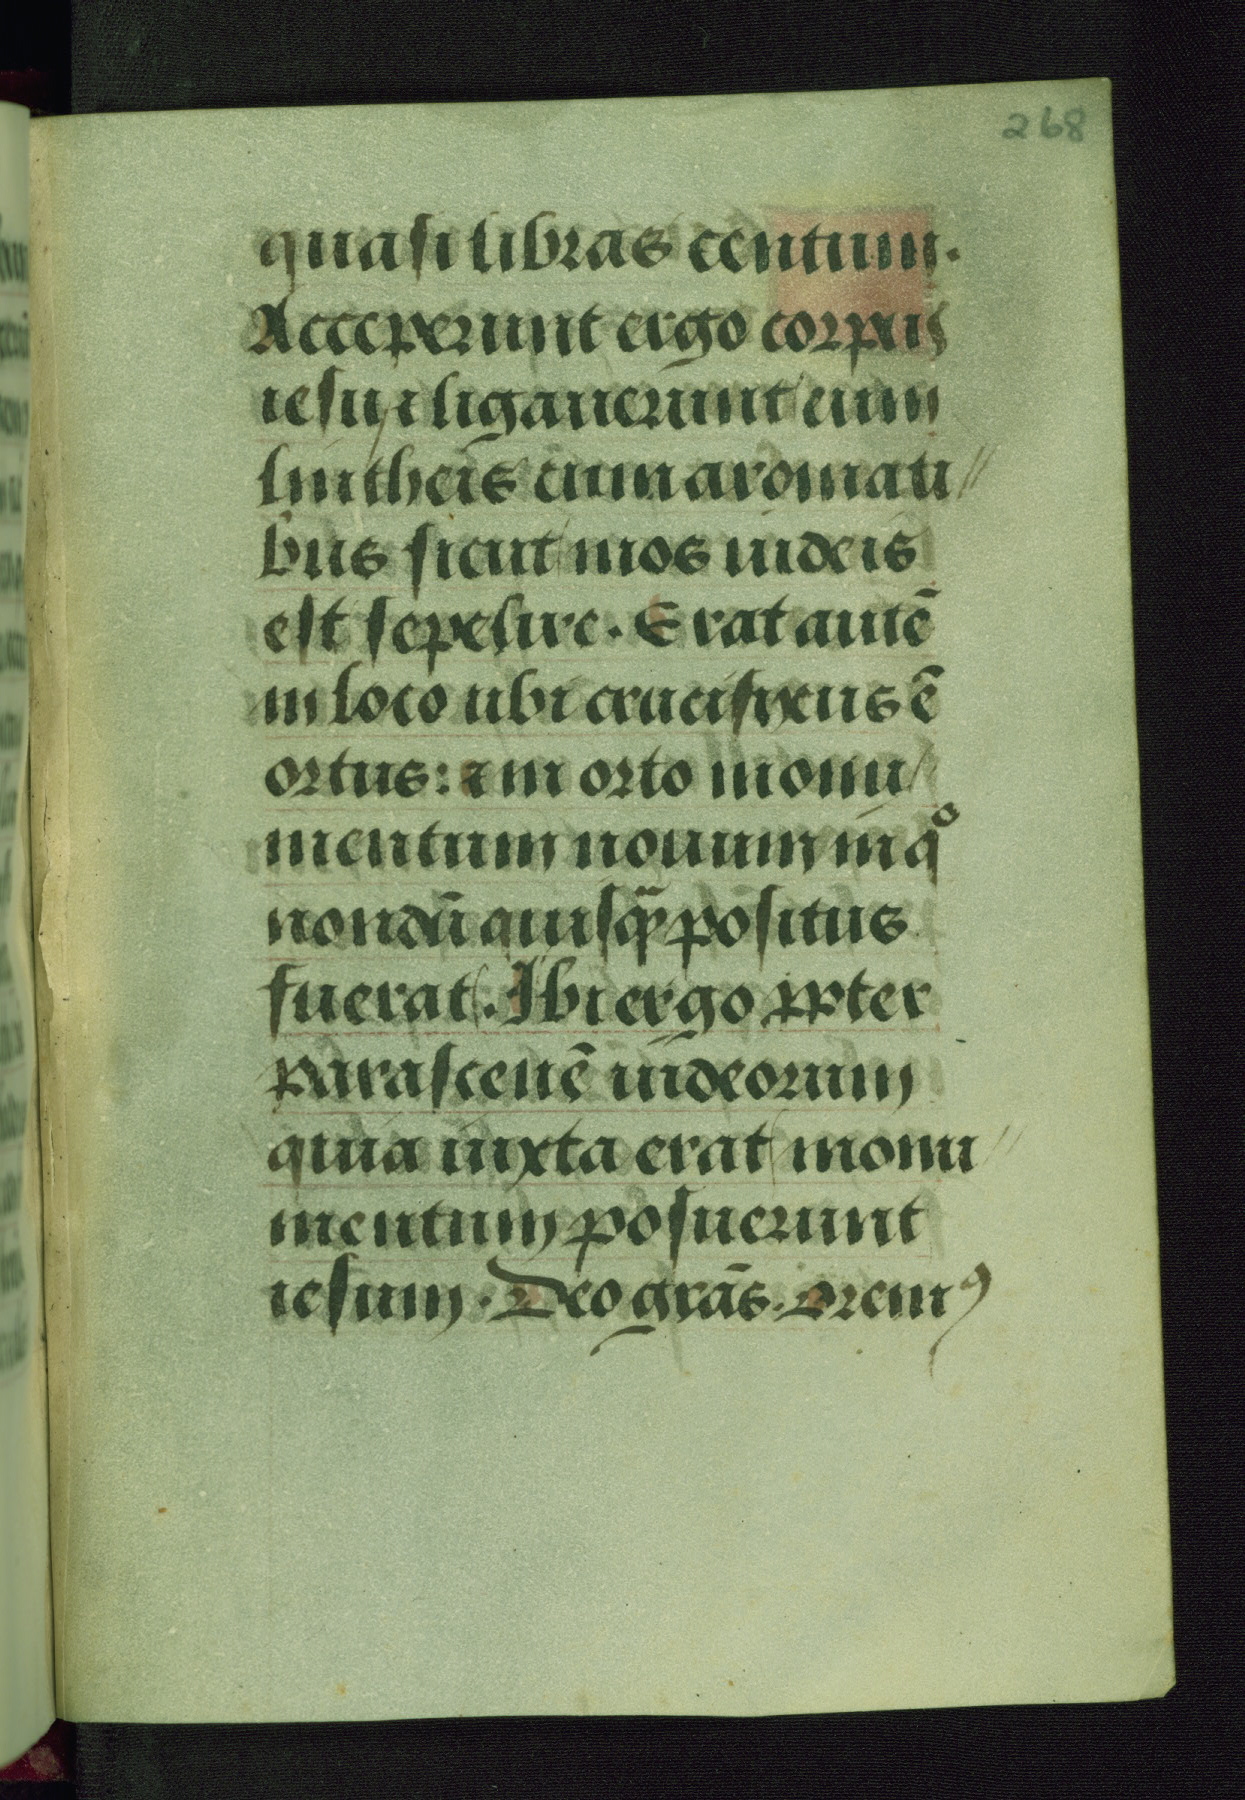 268
quasi libras centum.
Acceperunt ergo corpus
iesu ⁊ ligauerunt eum
lintheis cum aromati//
bus sicut mos iudeis
est sepelire. Erat autē
in loco ubi crucifixus ē
ortus: ⁊ in orto monu/
mentum nouum in qͦ
nondū quisꝙ̄ positus
fuerat. Ibi ergo ꝓpter
parasceuē iudeorum
quia iuxta erat monu//
mentum posuerunt
iesum. Deo grās. oremꝰ